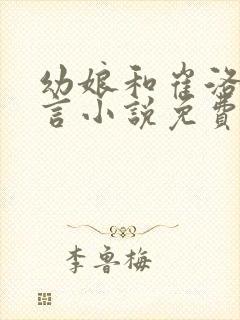 幼娘和崔洛
言小說免費
李魯梅